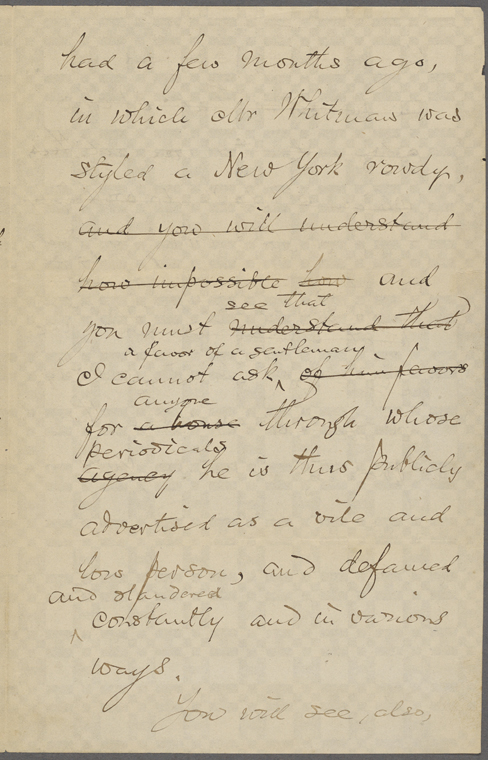 had a few months ago,
in which Mr Whitman was
styled a New York rowdy,
and you will understand
how impossible how and
see that
you must understand that
a favor of a gentleman
I cannot ask of him favors
anyone
for a house through whose
periodicals
agency he is thus publicly
advertised as a vile and
low person, and defamed
and slandered
constantly and in various
ways.
You will see, also,